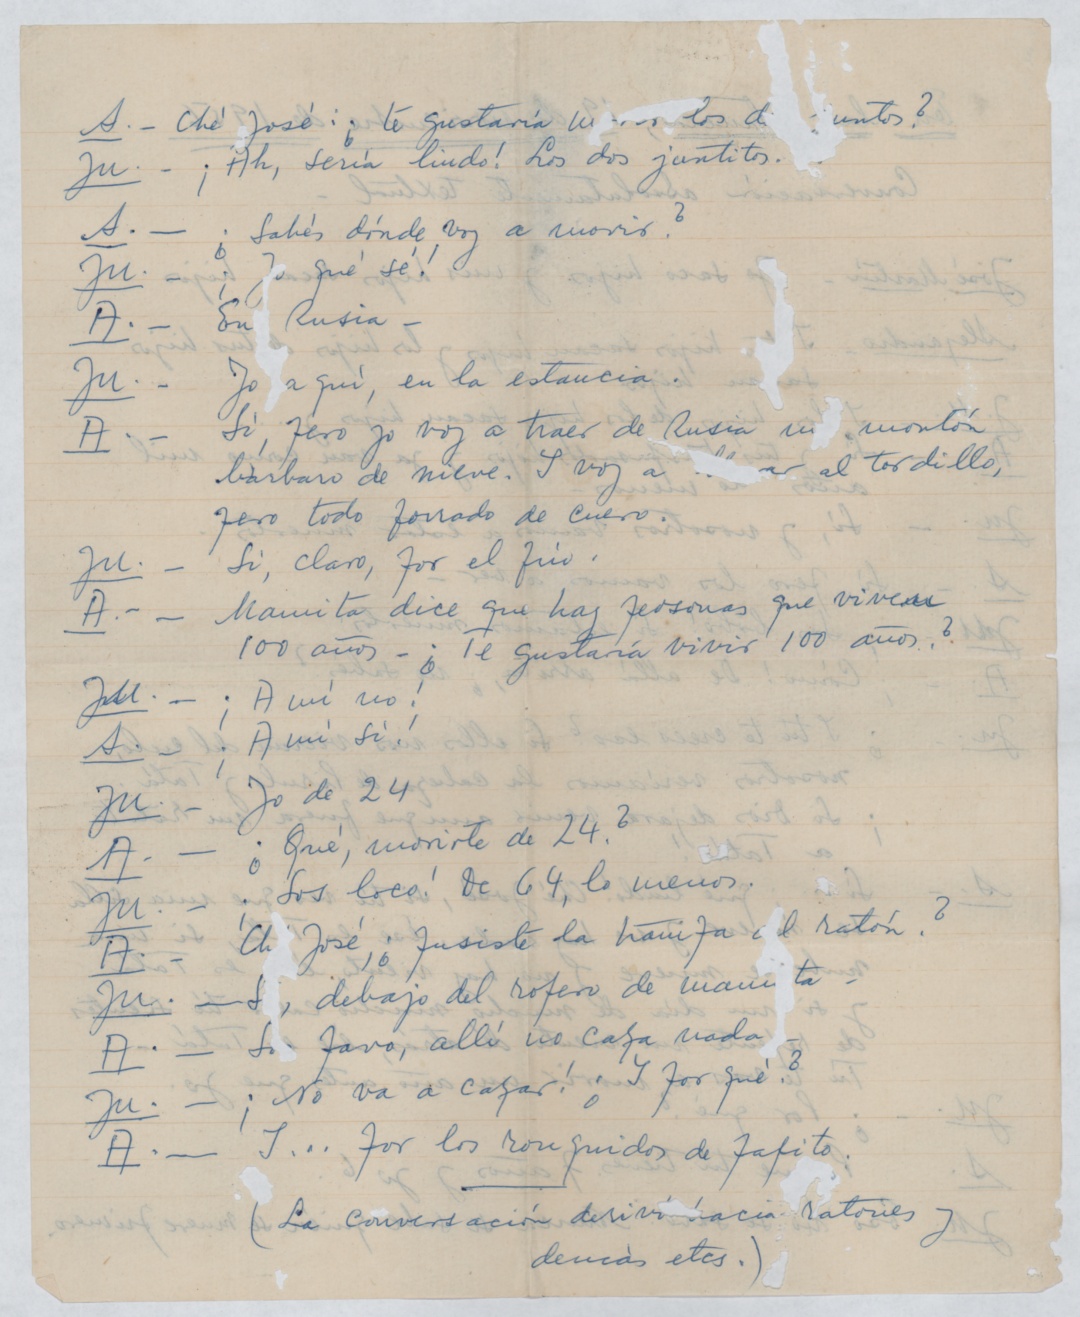 A. - Ché José: ¿te gustaría los juntos?
JM. - ¡Ah, sería lindo! Los dos juntitos.
A. - ¿Sabés dónde voy a morir?
JM. ¡Yo qué sé!
A. - En Rusia -
JM. - Yo aquí, en la estancia.
A. - Si, pero yo voy a traer de Rusia un montón
bárbaro de nieve. Y voy a al tordillo,
pero todo forrado de cuero.
JM. - Si, claro, por el frío.
A. - Mamita dice que hay personas que viven
100 años - ¿Te gustaría vivir 100 años?
JM. - ¡A mí no!
A. - ¡A mí sí!
JM. - Yo de 24
A. - ¿Qué, morirte de 24?
JM. - ¡Sos loco! De 64, lo menos.
A. - Ché José, ¿pusiste la trampa al ratón?
JM. - Si, debajo del ropero de mamita -
A. - So pavo, allí no caza nada -
JM. - ¡No va a cazar! ¿Y por qué?
A. - Y... por los ronquidos de papito.
(La conversación deriva hacia ratones y
demás etcs.)